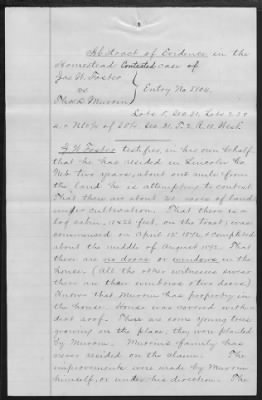 Abstract of Evidence in the
Homestead Contested case of
Jas W. Foster
vs
Entry No
Lots 5, Sec. 21, Lots 2, 3 &
J. W. Foster testifies, in his own behalf
that he has resided in Lincoln Co
Neb two years, about one mile from
the land he is attempting to contest
That there are about 20 acres of land
under cultivation. That there is a
log cabin, feet, on the tract, was
commenced on April 15" 1872, & completed
about the middle of August 1872. That
there are no doors or windows in the
house (All the other witnesses swear
there are two windows & two doors)
Know that has property in
the house. House was covered with a
dirt roof. There are some young trees
growing on the place, they were planted
by family has
never resided on the claim. The
improvements were made by
himself, or under his direction. The